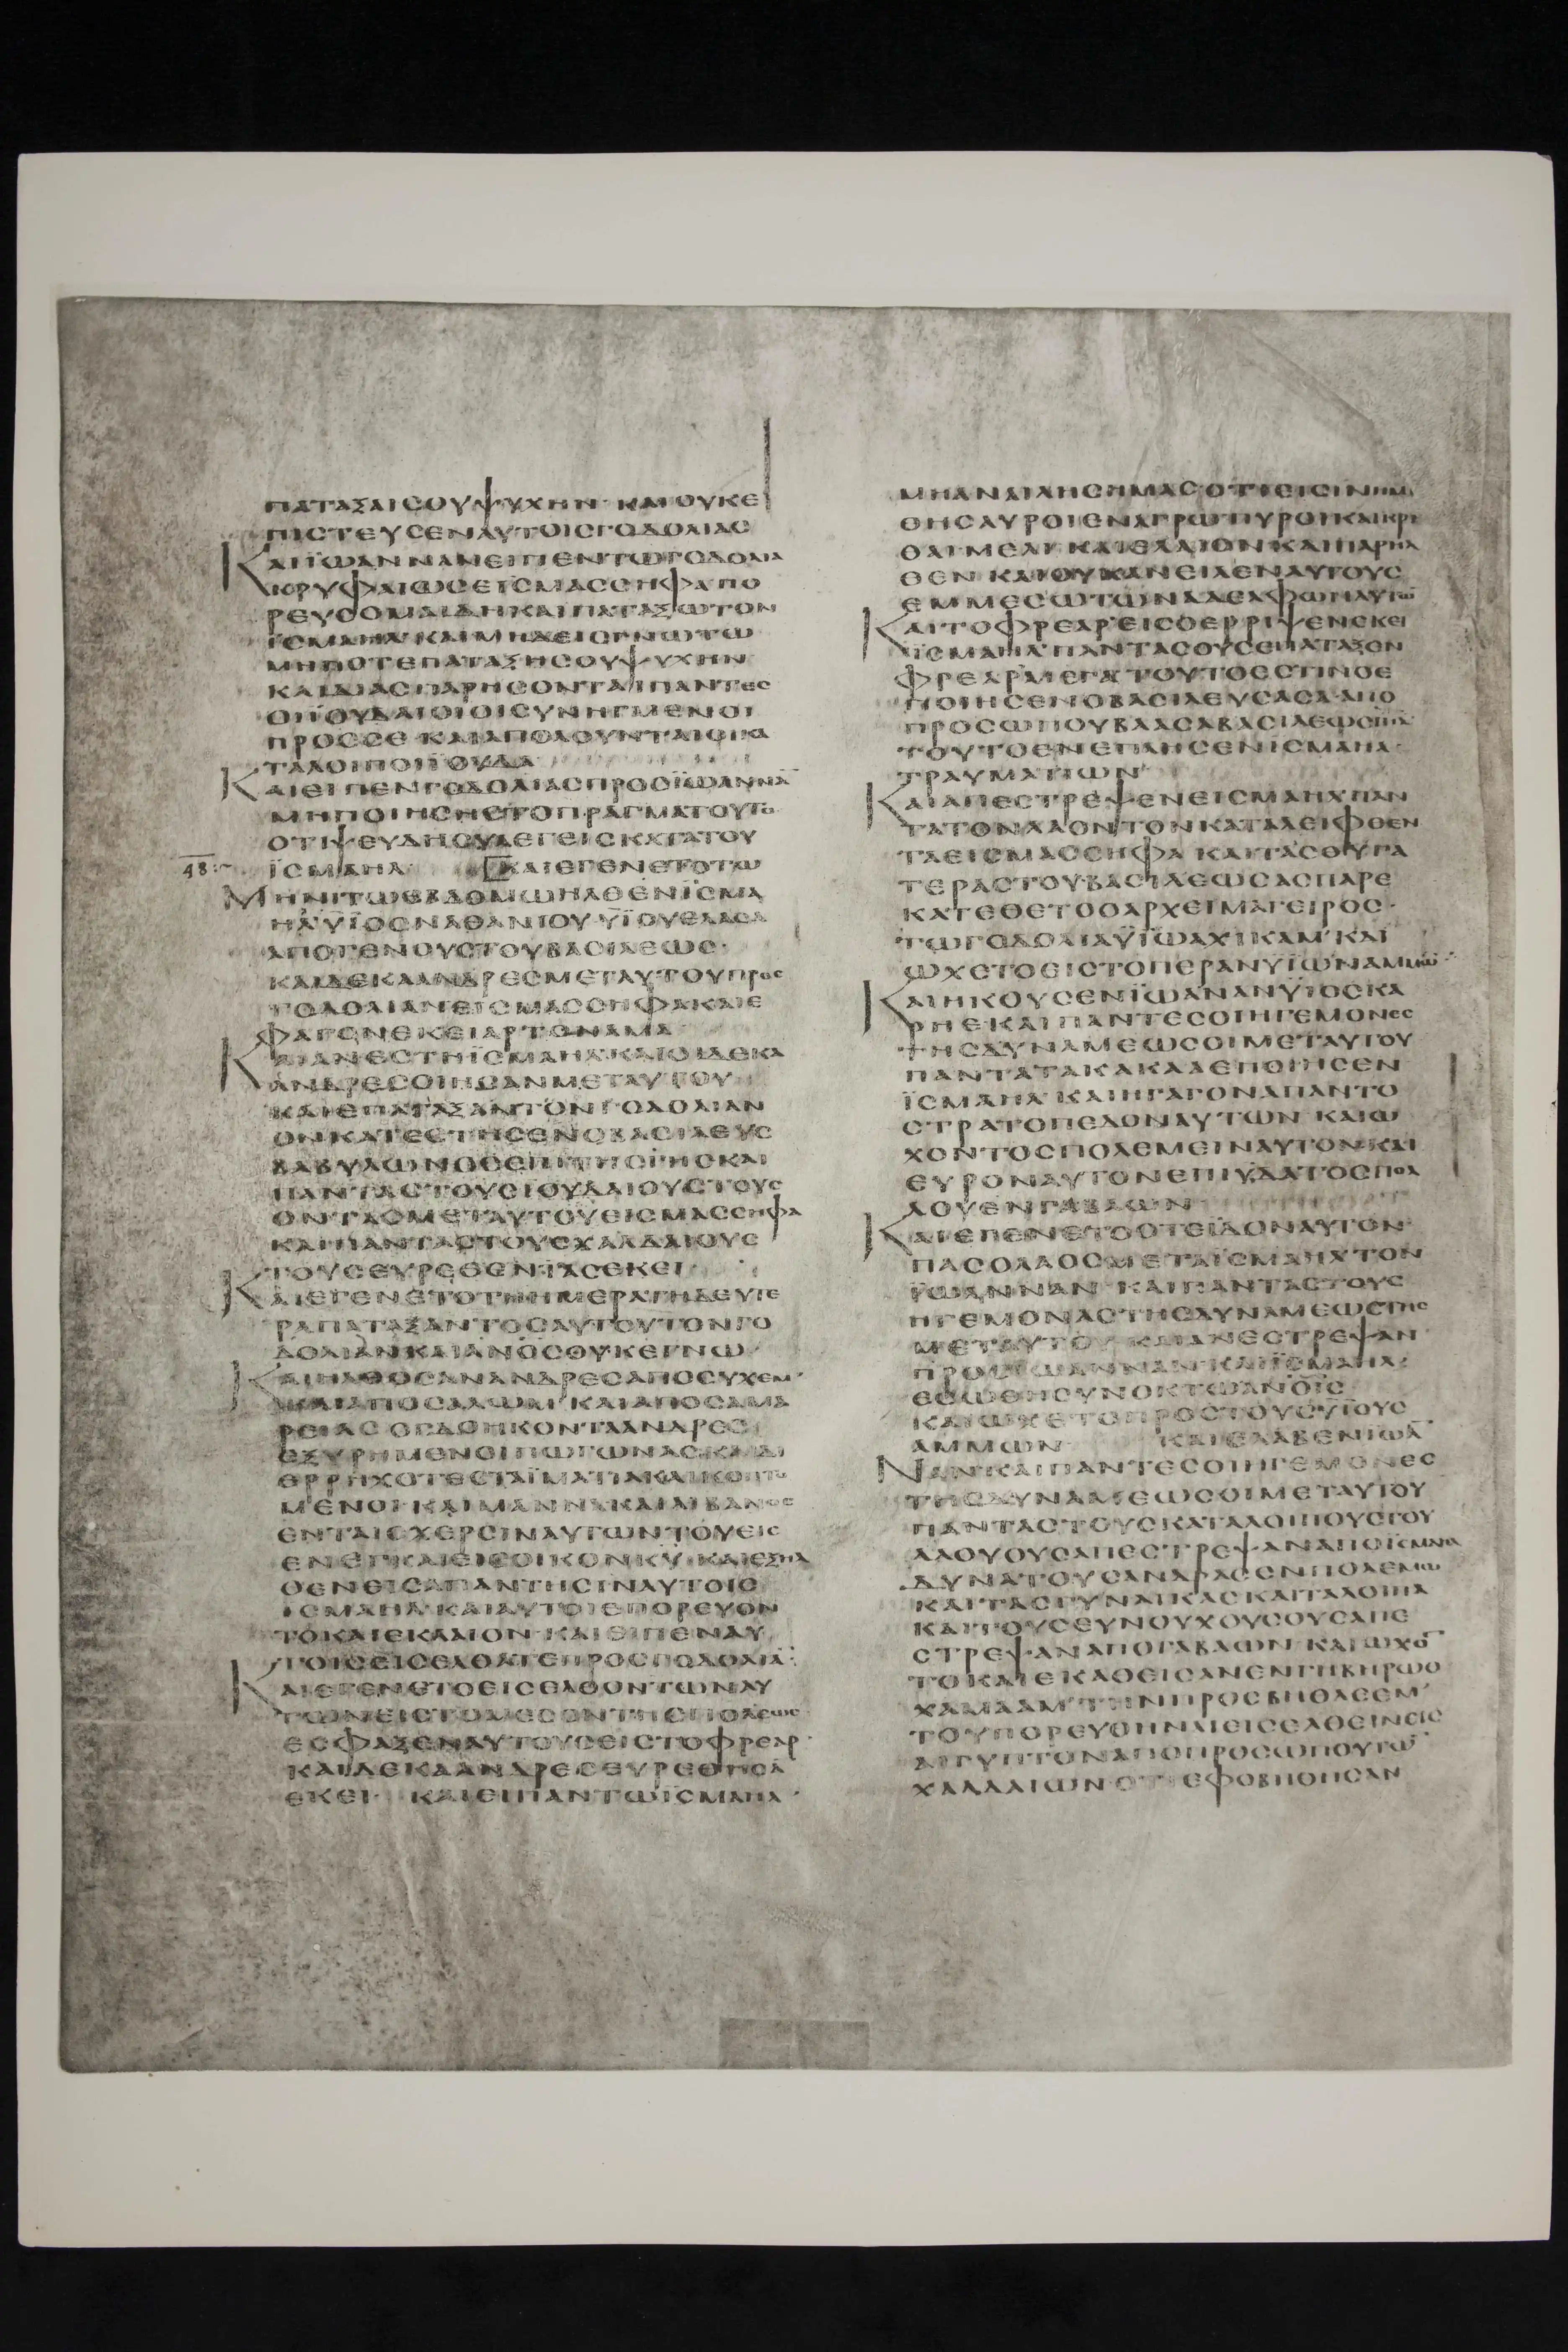 ΠΑΤΑΞΑΙΣΟΥΨΥΧΗΝ ΚΑΙ ΟΥΚΕ
ΠΙΣΤΕΥΣΕΝΑΥΤΟΙΣΓΟΔΟΛΙΑΣ
ΚΑΙΪΩΑΝΝΑΝΕΙΠΕΝΤΩΓΟΔΟΛΙΑ
ΚΡΥΦΑΙΩΣΕΙΣΜΑΣΣΗΦΑΠΟ
ΡΕΥΣΟΜΑΙΔΗΚΑΙΠΑΤΑΞΩΤΟΝ
ΪΣΜΑΗΛ ΚΑΙΜΗΔΕΙΣΓΝΩΤΩ
ΜΗΠΟΤΕΠΑΤΑΞΗΣΟΥΨΥΧΗΝ
ΚΑΙΔΙΑΣΠΑΡΗΣΟΝΤΑΙΠΑΝΤΕΣ
ΟΙΪΟΥΔΑΙΟΙΟΙΣΥΝΗΓΜΕΝΟΙ
ΠΡΟΣΣΕ ΚΑΙΑΠΟΛΟΥΝΤΑΙΟΙΚΑ
ΤΑΛΟΙΠΟΙΪΟΥΔΑ
ΚΑΙΕΙΠΕΝΓΟΔΟΛΙΑΣΠΡΟΣΪΩΑΝΝΑ
ΜΗΠΟΙΗΣΗΣΤΟΠΡΑΓΜΑΤΟΥΤΟ
ΟΤΙΨΕΥΔΗΣΥΛΕΓΕΙΣΚΑΤΑΤΟΥ
48 ΪΣΜΑΗΛ ΚΑΙΕΓΕΝΕΤΟΤΩ
ΜΗΝΙΤΩΕΒΔΟΜΩΗΛΘΕΝΪΣΜΑ
ΗΛΫΪΟΣΝΑΘΑΝΙΟΥ ΫΪΟΥΕΛΑΣΑ
ΑΠΟΓΕΝΟΥΣΤΟΥΒΑΣΙΛΕΩΣ·
ΚΑΙΔΕΚΑΑΝΔΡΕΣΜΕΤΑΥΤΟΥΠΡΟΣ
ΓΟΔΟΛΙΑΝΕΙΣΜΑΣΣΗΦΑΚΑΙΕ
ΦΑΓΟΝΕΚΕΙΑΡΤΟΝΑΜΑ
ΚΑΙΑΝΕΣΤΗΪΣΜΑΗΛΚΑΙΟΙΔΕΚΑ
ΑΝΔΡΕΣΟΙΗΣΑΝΜΕΤΑΥΤΟΥ
ΚΑΙΕΠΑΤΑΞΑΝΤΟΝΓΟΔΟΛΙΑΝ
ΟΝΚΑΤΕΣΤΗΣΕΝΟΒΑΣΙΛΕΥΣ
ΒΑΒΥΛΩΝΟΣΕΠΙΤΗΣΓΗΣΚΑΙ
ΠΑΝΤΑΣΤΟΥΣΙΟΥΔΑΙΟΥΣΤΟΥΣ
ΟΝΤΑΣΜΕΤΑΥΤΟΥΕΙΣΜΑΣΣΗΦΑ
ΚΑΙΠΑΝΤΑΣΤΟΥΣΧΑΛΔΑΙΟΥΣ
ΤΟΥΣΕΥΡΕΘΕΝΤΑΣΕΚΕΙ
ΚΑΙΕΓΕΝΕΤΟΤΗΗΜΕΡΑΤΗΔΕΥΤΕ
ΡΑΠΑΤΑΞΑΝΤΟΣΑΥΤΟΥΤΟΝΓΟ
ΔΟΛΙΑΝΚΑΙΑΝΟΣΟΥΚΕΓΝΩ
ΚΑΙΗΛΘΟΣΑΝΑΝΔΡΕΣΑΠΟΣΥΧΕΜ·
ΚΑΙΑΠΟΣΑΛΗΜ ΚΑΙΑΠΟΣΑΜΑ
ΡΕΙΑΣ ΟΓΔΟΗΚΟΝΤΑΑΝΔΡΕΣ
ΕΞΥΡΗΜΕΝΟΙΠΩΓΩΝΑΣΚΑΙΔΙ
ΕΡΡΗΧΟΤΕΣΤΑΪΜΑΤΙΑΚΑΙΚΟΠΤΟ
ΜΕΝΟΙ ΚΑΙΜΑΝΝΑΚΑΙΛΙΒΑΝΟΣ
ΕΝΤΑΙΣΧΕΡΣΙΝΑΥΤΩΝΤΟΥΕΙΣ
ΕΝΕΓΚΑΙΕΙΣΟΙΚΟΝΚΥ ΚΑΙΕΞΗΛ
ΘΕΝΕΙΣΑΠΑΝΤΗΣΙΝΑΥΤΟΙΣ
ΙΣΜΑΗΛ ΚΑΙΑΥΤΟΙΕΠΟΡΕΥΟΝ
ΤΟΚΑΙΕΚΛΑΙΟΝ ΚΑΙΕΙΠΕΝΑΥ
ΤΟΙΣΕΙΣΕΛΘΑΤΕΠΡΟΣΓΟΔΟΛΙΑ
ΚΑΙΕΓΕΝΕΤΟΕΙΣΕΛΘΟΝΤΩΝΑΥ
ΤΩΝΕΙΣΤΟΜΕΣΟΝΤΗΣΠΟΛΕΩΣ
ΕΣΦΑΞΕΝΑΥΤΟΥΣΕΙΣΤΟΦΡΕΑΡ·
ΚΑΙΔΕΚΑΑΝΔΡΕΣΕΥΡΕΘΗΣΑ
ΕΚΕΙ ΚΑΙΕΙΠΑΝΤΩΪΣΜΑΗΛ·
ΜΗΑΝΕΛΗΣΗΜΑΣΟΤΙΕΙΣΙΝΗΜΙ
ΘΗΣΑΥΡΟΙΕΝΑΓΡΩΠΥΡΟΙΚΑΙΚΡΙ
ΘΑΙΜΕΛΙ ΚΑΙΕΛΑΙΟΝ ΚΑΙΠΑΡΗΛ
ΘΕΝ ΚΑΙΟΥΚΑΝΕΙΛΕΝΑΥΤΟΥΣ
ΕΜΜΕΣΩΤΩΝΑΔΕΛΦΩΝΑΥΤΩ
ΚΑΙΤΟΦΡΕΑΡΕΙΣΟΕΡΡΙΨΕΝΕΚΕΙ
ΪΣΜΑΗΛ ΠΑΝΤΑΣΟΥΣΕΠΑΤΑΞΕΝ
ΦΡΕΑΡΜΕΓΑ ΤΟΥΤΟΕΣΤΙΝΟΕ
ΠΟΙΗΣΕΝΟΒΑΣΙΛΕΥΣΑΣΑ ΑΠΟ
ΠΡΟΣΩΠΟΥΒΑΑΣΑΒΑΣΙΛΕΩΣΙΗΛ
ΤΟΥΤΟΕΝΕΠΛΗΣΕΝΙΣΜΑΗΛ·
ΤΡΑΥΜΑΤΙΩΝ
ΚΑΙΑΠΕΣΤΡΕΨΕΝΕΙΣΜΑΗΛΠΑΝ
ΤΑΤΟΝΛΑΟΝΤΟΝΚΑΤΑΛΕΙΦΘΕΝ
ΤΑΕΙΣΜΑΣΣΗΦΑ ΚΑΙΤΑΣΘΥΓΑ
ΤΕΡΑΣΤΟΥΒΑΣΙΛΕΩΣΑΣΠΑΡΕ
ΚΑΤΕΘΕΤΟΟΑΡΧΕΙΜΑΓΕΙΡΟΣ·
ΤΩΓΟΔΟΛΙΑΫΪΩΑΧΙΚΑΜ ΚΑΙ
ΩΧΕΤΟΕΙΣΤΟΠΕΡΑΝΥΪΩΝΑΜΜΩ
ΚΑΙΗΚΟΥΣΕΝΪΩΑΝΑΝΫΪΟΣΚΑ
ΡΗΕΚΑΙΠΑΝΤΕΣΟΙΗΓΕΜΟΝΕΣ
ΤΗΣΔΥΝΑΜΕΩΣΟΙΜΕΤΑΥΤΟΥ
ΠΑΝΤΑΤΑΚΑΚΑΑΕΠΟΙΗΣΕΝ
ΪΣΜΑΗΛ ΚΑΙΗΓΑΓΟΝΑΠΑΝΤΟ
ΣΤΡΑΤΟΠΕΔΟΝΑΥΤΩΝ ΚΑΙΩ
ΧΟΝΤΟΣΠΟΛΕΜΕΙΝΑΥΤΟΝΚΑΙ
ΕΥΡΟΝΑΥΤΟΝΕΠΙΥΔΑΤΟΣΠΟΛ
ΛΟΥΕΝΓΑΒΑΩΝ
ΚΑΙΕΓΕΝΕΤΟΟΤΕΪΔΟΝΑΥΤΟΝ
ΠΑΣΟΛΑΟΣΜΕΤΑΪΣΜΑΗΛΤΟΝ
ΪΩΑΝΝΑΝ ΚΑΙΠΑΝΤΑΣΤΟΥΣ
ΗΓΕΜΟΝΑΣΤΗΣΔΥΝΑΜΕΩΣΤΗΣ
ΜΕΤΑΥΤΟΥ ΚΑΙΑΝΕΣΤΡΕΨΑΝ
ΠΡΟΣΪΩΑΝΝΑΝ ΚΑΙΪΣΜΑΗΛ
ΕΣΩΘΗΣΥΝΟΚΤΩΑΝΟΙΣ
ΚΑΙΩΧΕΤΟΠΡΟΣΤΟΥΣΥΪΟΥΣ
ΑΜΜΩΝ ΚΑΙΕΛΑΒΕΝΙΩΑ
ΝΑΝΚΑΙΠΑΝΤΕΣΟΙΗΓΕΜΟΝΕΣ
ΤΗΣΔΥΝΑΜΕΩΣΟΙΜΕΤΑΥΤΟΥ
ΠΑΝΤΑΣΤΟΥΣΚΑΤΑΛΟΙΠΟΥΣΤΟΥ
ΛΑΟΥΟΥΣΑΠΕΣΤΡΕΨΑΝΑΠΟΪΣΜΑΗΛ
ΔΥΝΑΤΟΥΣΑΝΔΡΑΣΕΝΠΟΛΕΜΩ
ΚΑΙΤΑΣΓΥΝΑΙΚΑΣΚΑΙΤΑΛΟΙΠΑ
ΚΑΙΤΟΥΣΕΥΝΟΥΧΟΥΣΟΥΣΑΠΕ
ΣΤΡΕΨΑΝΑΠΟΓΑΒΑΩΝ ΚΑΙΩΧΟ
ΤΟΚΑΙΕΚΑΘΕΙΣΑΝΕΝΓΗΒΗΡΩΘ
ΧΑΜΑΑΜ ΤΗΝΠΡΟΣΒΗΘΛΕΕΜ
ΤΟΥΠΟΡΕΥΘΗΝΑΙΕΙΣΕΛΘΕΙΝΕΙΣ
ΑΙΓΥΠΤΟΝΑΠΟΠΡΟΣΩΠΟΥΤΩ
ΧΑΛΔΑΙΩΝ ΟΤΙΕΦΟΒΗΘΗΣΑΝ